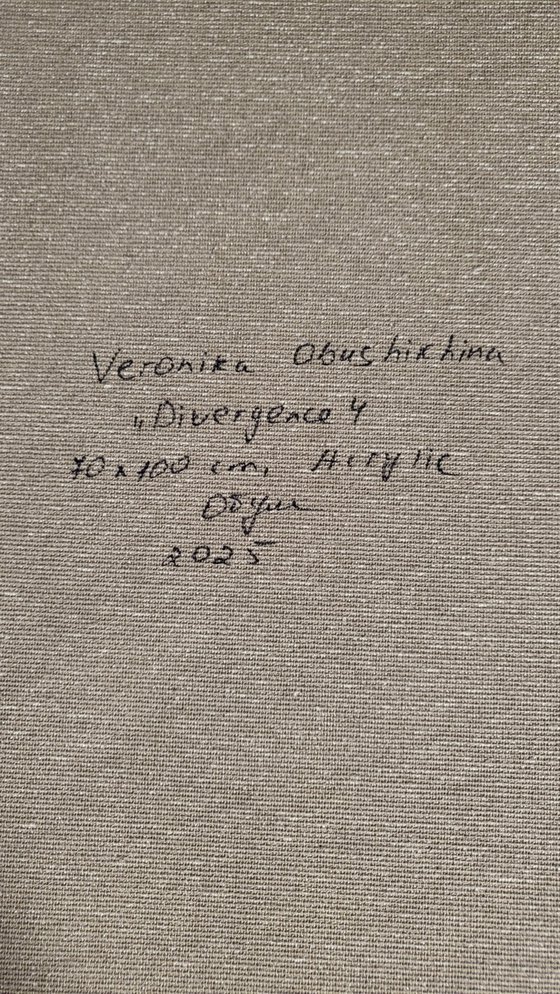 Veronika Obushikhina
„Divergence“
70 x 100 cm, Acrylic
2025